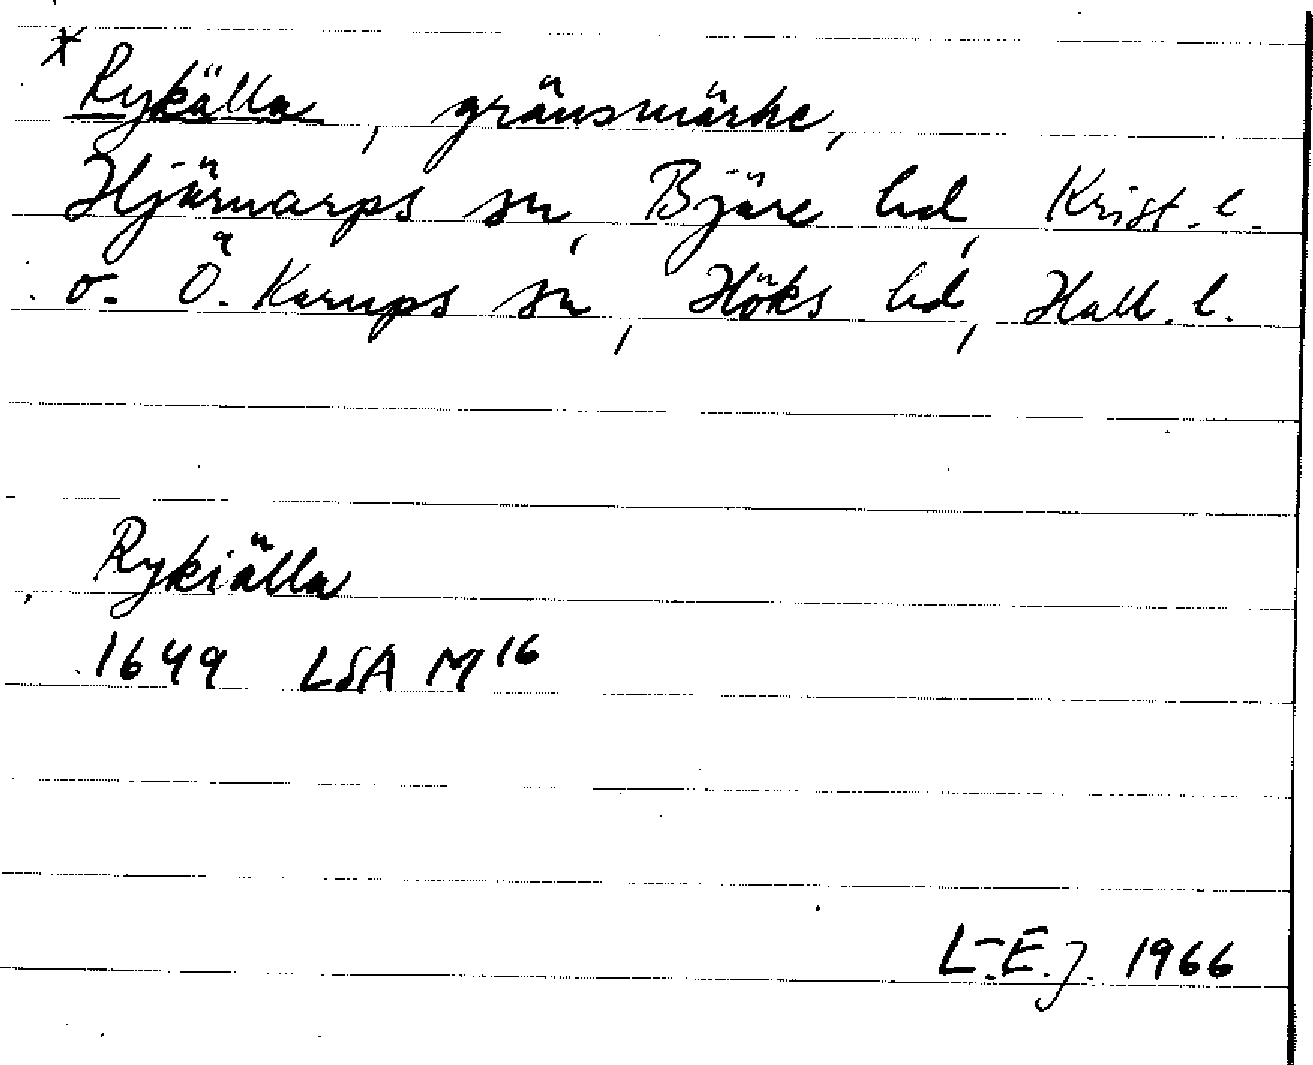 * Rykälla, gränsmärke,
Hjärnarps sn, Bjäre hd, Krist. l.
o. Ö. Karups sn, Höks hd, Hall. l.
Rykiälla
1649 LSA M16
L-E.J. 1966